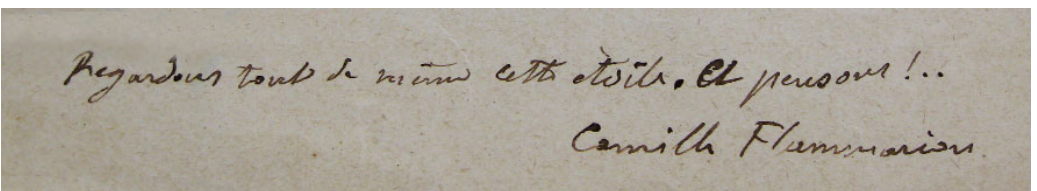 Regardons tout de même cette étoile. Et pensons !..
Camille Flammarion